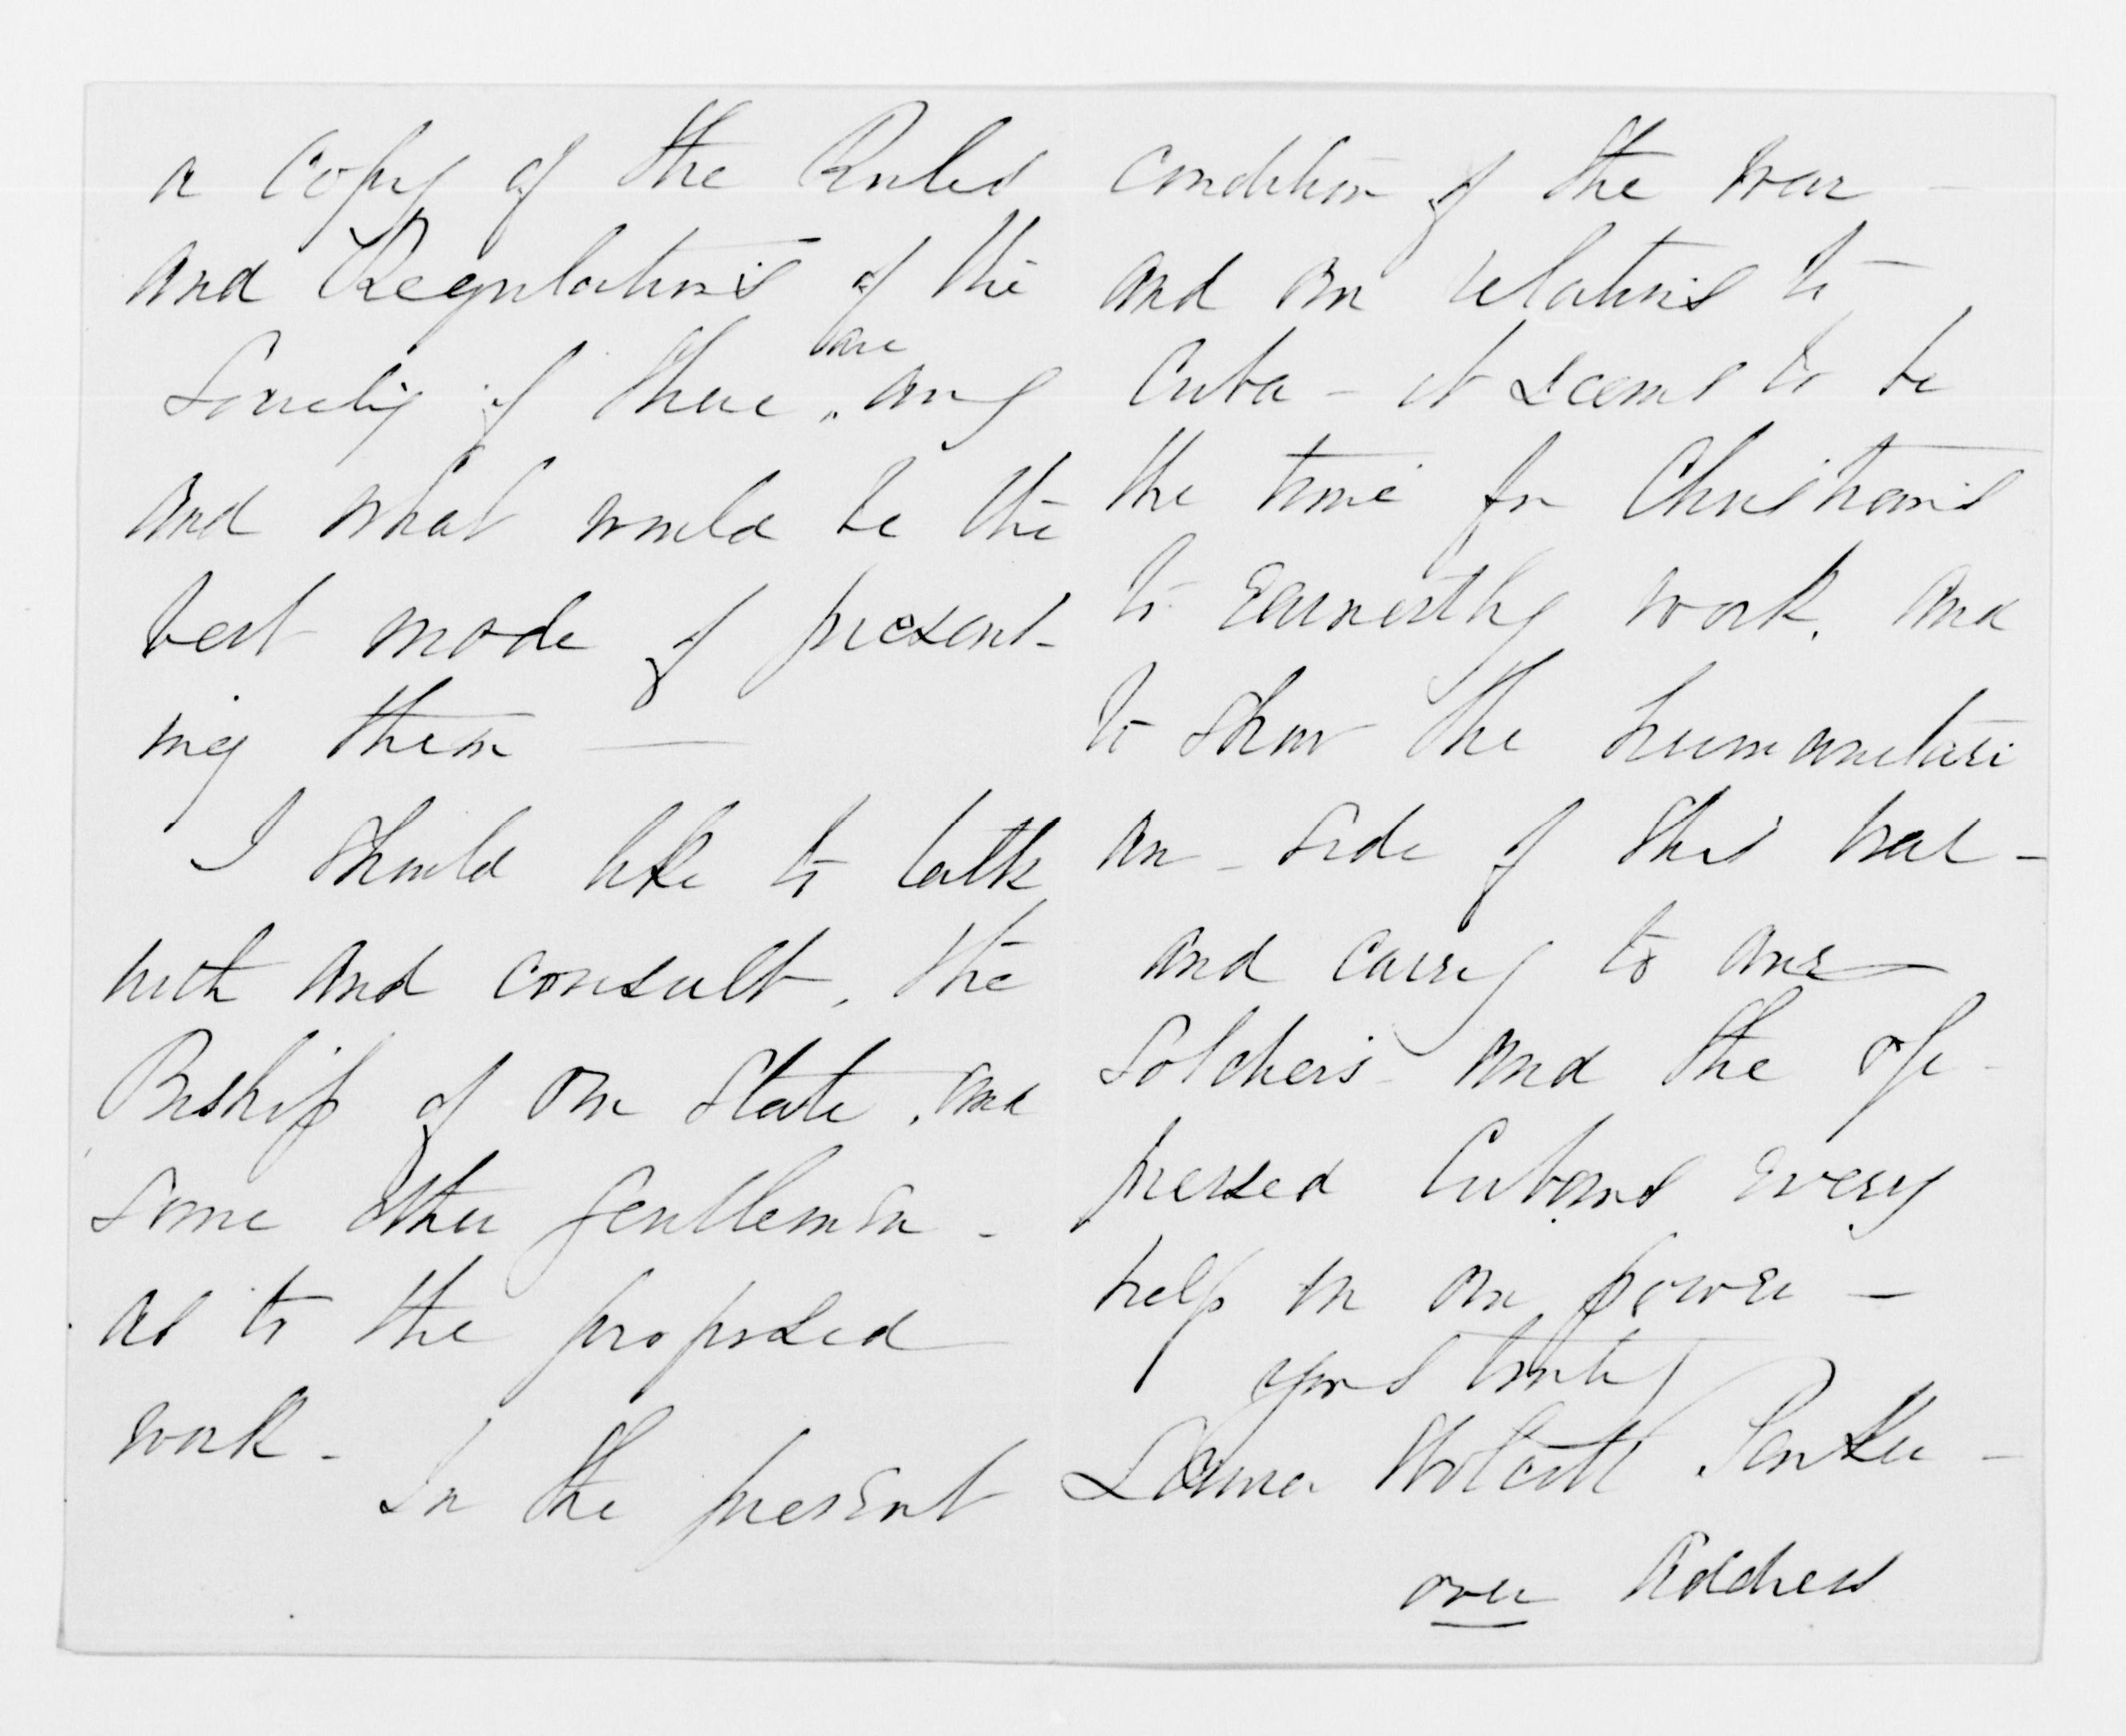 a Copy of the Rules
and Regulations of the
Society if there are any
and what would be the
best mode of present-
ing them —
I should like to talk
with and consult, the
Bishop of our State, and
some other gentlemen -
as to the proposed
work -
In the present
condition of the war -
and our relations to
Cuba - it seems to be
the time for Christians
to earnestly work, and
to show the humanitari
an - side of this war -
and carry to our
soldiers - and the op-
pressed Cubans every
help in our power -
yours truly
Laura Wolcott
over Address